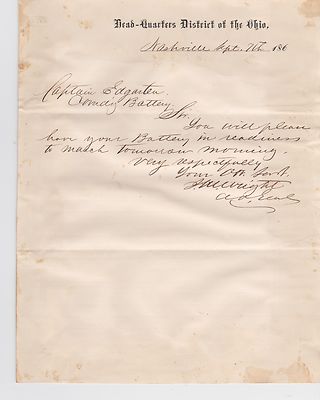 Head-Quarters District of the Ohio,
Nashville Sept. 7th 186
Captain Edgarten
Comdg Battery.
Sir.
You will please
have your Battery in readiness
to march tomorrow morning.
Very respectfully
Your Obt. Servt.
J M Wright
A. A. Genl